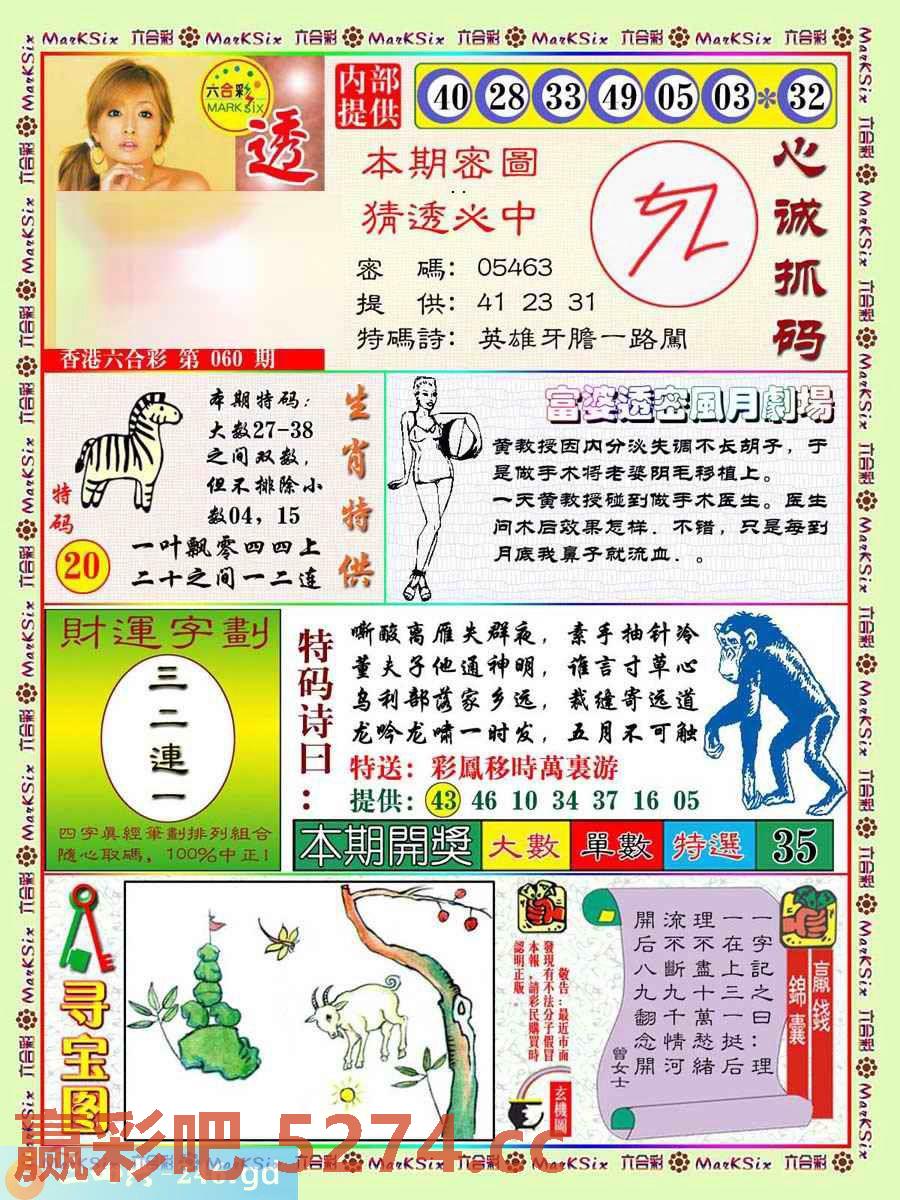 MarKSix 六合彩 MarKSix 六合彩 MarKSix 六合彩 MarKSix 六合彩 MarKSix 六合彩
六合彩
MARK six
透
内部
提供
40 28 33 49 05 03 * 32
本期密圖
猜透必中
密 碼: 05463
提 供: 41 23 31
特碼詩: 英雄牙膽一路闖
心诚抓码
香港六合彩 第 060 期
本期特码:
大数27-38
之间双数,
但不排除小
数04, 15
特码
20
一叶飘零四四上
二十之间一二连
生肖特供
富婆透密風月劇場
黄教授因内分淡失调不长胡子, 于
是做手术将老婆阴毛移植上。
一天黄教授碰到做手术医生。医生
问术后效果怎样. 不错, 只是每到
月底我鼻子就流血. 。
財運字劃
三二連一
四字真經筆劃排列組合
隨心取碼, 100%中正!
特码诗曰:
嘶酸离雁失群夜, 素手抽针冷
董夫子他通神明, 谁言寸草心
乌利部落家乡远, 裁缝寄远道
龙吟龙啸一时发, 五月不可触
特送: 彩鳳移時萬裏游
提供: 43 46 10 34 37 16 05
本期開獎 大數 單數 特選 35
寻宝图
敬告:最近市面
發現有不法分子假冒
本報,請彩民購買時
認明正版.
玄機圖
一字記之曰:理
一在上三一挺后
理不盡十萬愁緒
流不斷九千情河
開后八九翻念開
曾女士
贏錢
錦囊
赢彩吧 5274.cc
MarKSix 六合彩 MarKSix 六合彩 MarKSix 六合彩